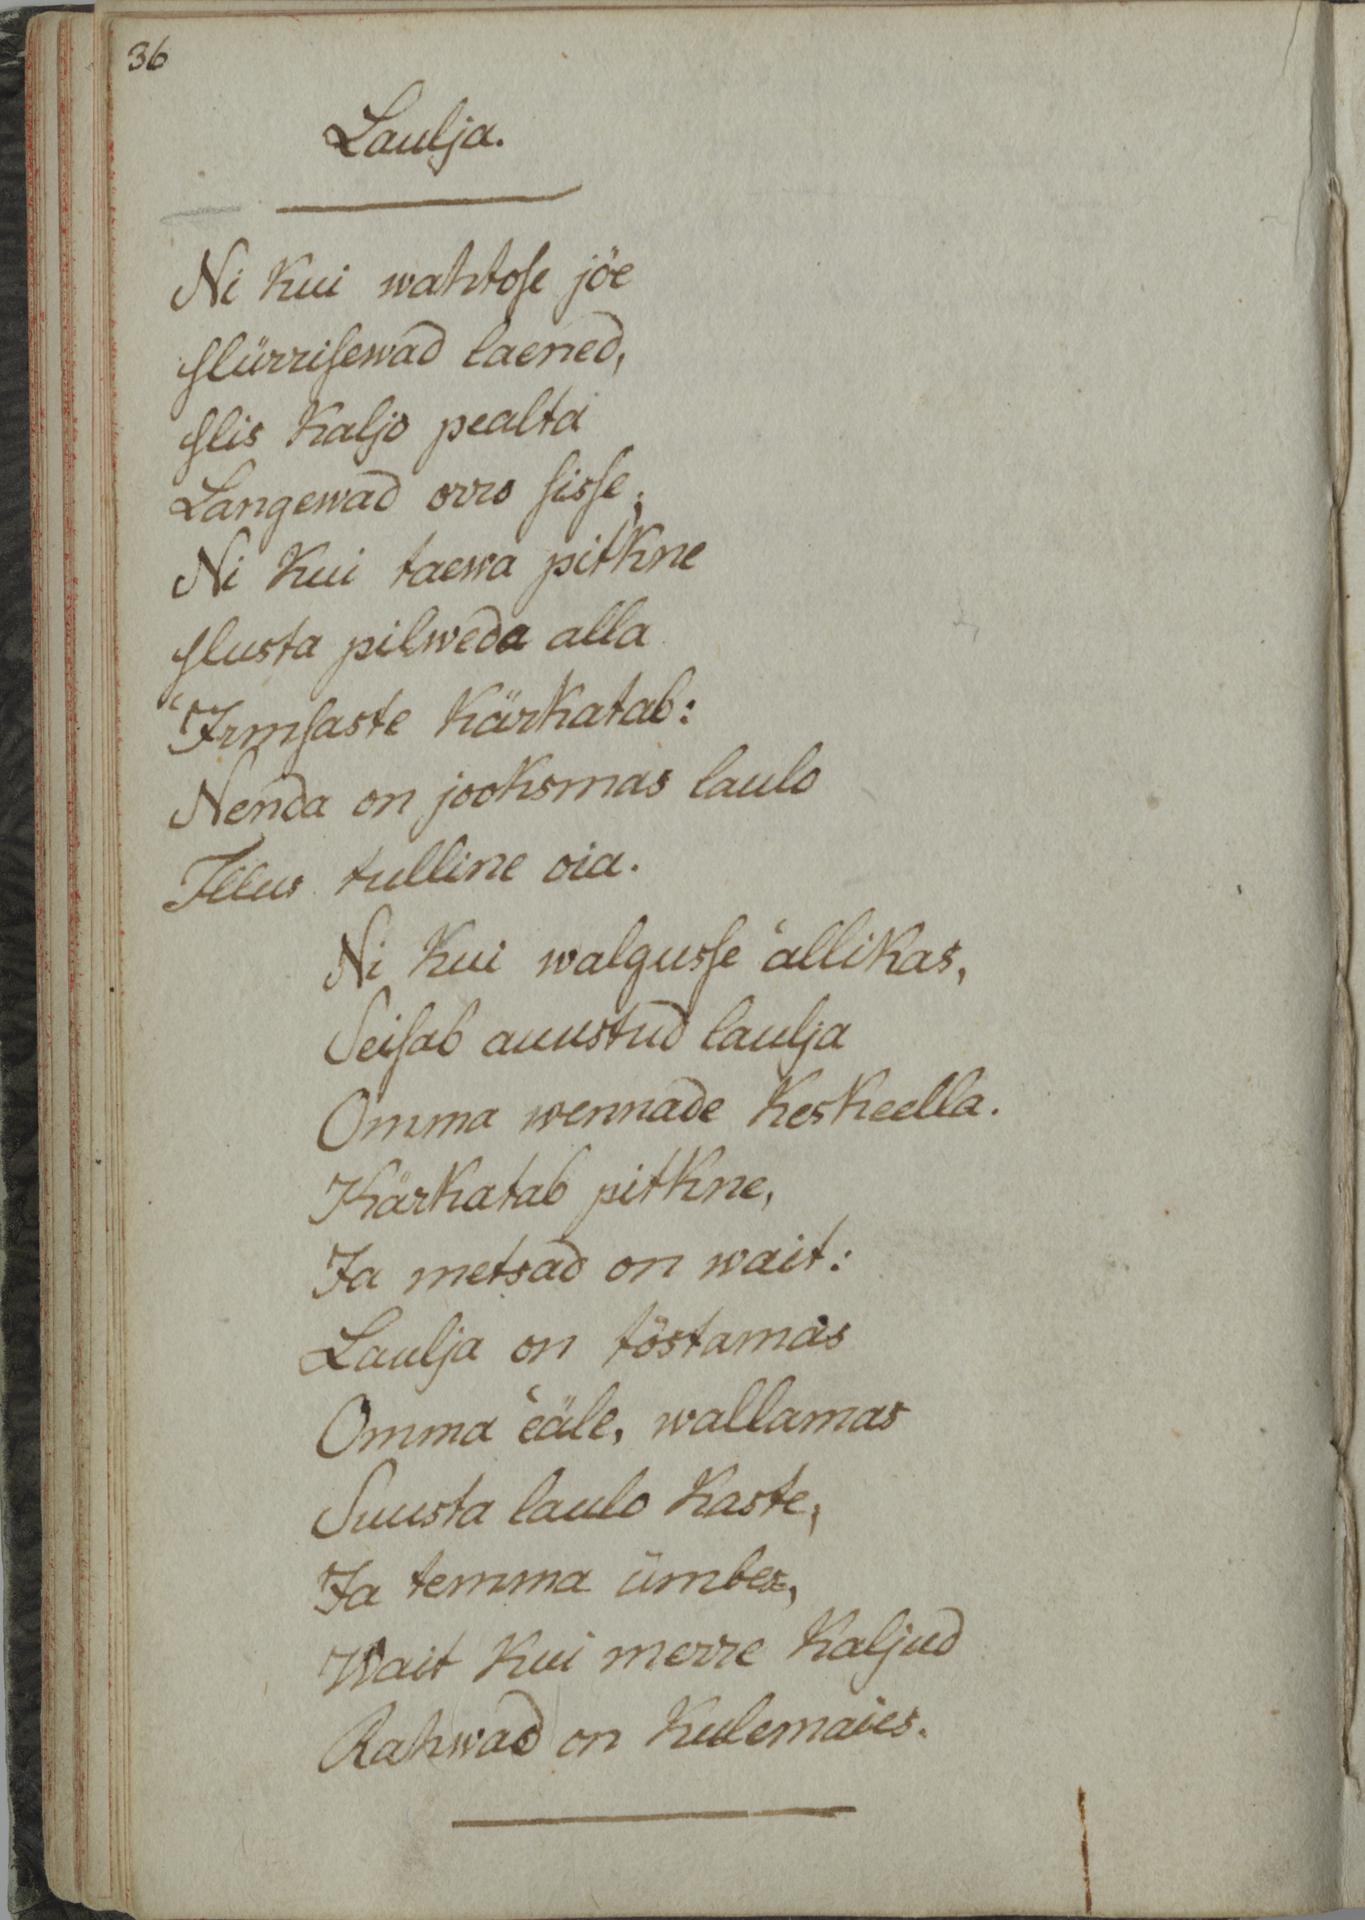 36
Laulja.
Ni kui wahtose jöe
Sürrisewad laened,
Siis kaljo pealta
Langewad orro sisse;
Ni kui taewa pitkne
Susta pilweda alla
'Irmsaste kärkatab:
Nenda on jooksmas laulo
Illus tulline oia.
Ni kui walgusse 'allikas,
Seisab auustud laulja
Omma wennade keskeella.
Kärkatab pitkne,
Ja metsad on wait:
Laulja on töstamas
Omma 'eäle, wallamas
Suusta laulo kaste,
Ja temma ümber,
Wait kui merre kaljud
Rahwad on kulemaies.